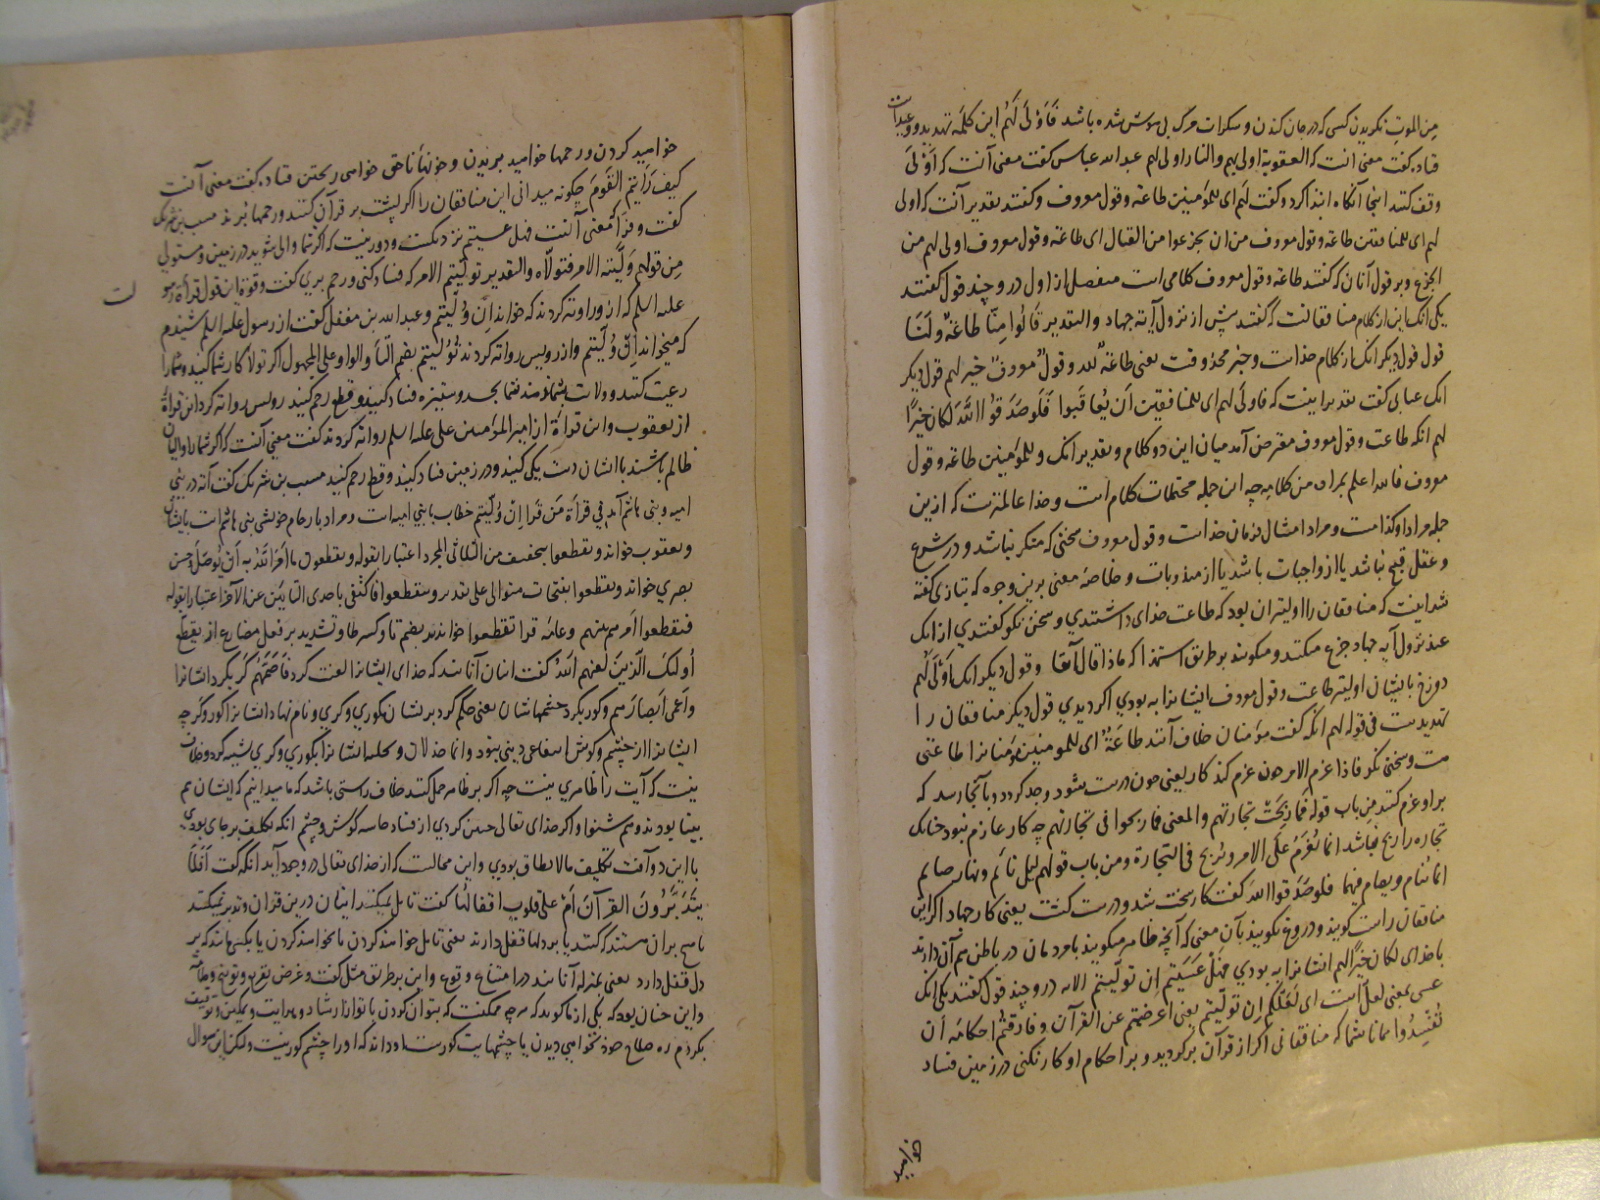 مِنَ الموتِ نگریدن کسی که در جان کندن و سکرات مرگ بی هوش شده باشد فَاَوْلیٰ لَهُم این کلمه تهدید و وعیدات
قتاده گفت معنی آنست که العقوبة اولی بهم والنار اولی لهم عبدالله عباس گفت معنی آنست که اَوْلیٰ
وقف کنند اینجا آنگاه ابتدا کرد و گفت لَهُم ای للمؤمنین طاعة وقول معروف و گفتند تقدیر آنست که اولی
لهم ای للمنافقین طاعة وقول معروف من ان یجزعوا من القتال ای طاعة وقول معروف اولی لهم من
الجزع و بر قول آنان که گفتند طاعة وقول معروف کلامی است منفصل از اول درو چند قول گفتند
یکی آنک این از کلام منافقانست که گفتند پیش از نزول آیة جهاد والتقدیر قَالُوا مِنّا طاعَةٌ ولَنَا
قول قول دیگر آنک از کلام خداست و خبر محذوفست یعنی طاعةٌ لله وقولٌ معروفٌ خیر لهم قول دیگر
آنک عباس گفت تقدیر اینست که فاولیٰ لهم ای للمنافقین اَن یُعاقَبوا فَلَوصَدَقوُا اللهَ لَکانَ خیرًا
لهم آنکه طاعت وقول معروف معترض آمد میان این دو کلام و تقدیر آنک وللمؤمنین طاعة وقول
معروف فالله اعلم بمراده من کلامه چه این جمله محتملات کلام است و خدا عالمترست که ازین
جمله مراد او کدامست و مراد امتثال فرمان خداست وقول معروف سخنی که منکر نباشد و در شرع
و عقل قبیح نباشد یا از واجبات باشد یا از مندوبات و خلاصۀ معنی برین وجوه که بتازی گفته
شد اینست که منافقان را اولیتر آن بود که طاعت خدای داشتندی و سخن نکو گفتندی از آنک
عند نزول آیه جهاد جزع میکنند و میگویند بر طریق استهزا که ماذا قال آنفا وقول دیگر آنک اَوْلیٰ لَهُم
دوزخ بایشان اولیتر طاعت وقول معروف ایشانرا به بودی اگر دیدی قول دیگر منافقان را
تهدیدست فی قوله لهم آنکه گفت مؤمنان خلاف آنند طاعَةٌ ای للمومنین مؤمنانرا طاعتی
ست و سخنی نکو فاذا عزم الامر چون عزم کند کار یعنی چون درست شود و جد گردد و بآنجا رسد که
برو عزم کنند مِن باب قوله فَما رَبِحَتْ تجارتهم والمعنی فما ربحوا فی تجارتهم چه کار عازم نبود چنانک
تجاره رابح نباشد انما تُعْزَمُ عَلَی الامر و یُربَح فی التجارة ومن باب قولهم لیل نائم ونهار صایم
انما ینام ویصام فیهما فلو صَدَقوا الله گفت کار سخت شد و درست گشت یعنی کار جهاد اگر این
منافقان راست گویند و دروغ نگویند بآن معنی که آنچه ظاهر میگویند با مردمان در باطن هم آن دارند
با خدای لَکان خیرًا لهم ایشانرا به بودی فَهَلْ عَسَیْتم اِن تَوَلَّیتم الایه درو چند قول گفتند یکی آنک
عسی بمعنی لعلّ است ای لَعَلَّکم ان تولّیتم یعنی اعرضتم عن القرآن و فارقتُم احکامَه اَن
تُفْسِدُوا همانا شما که منافقانی اگر از قرآن برگردید و بر احکام او کار نکنی در زمین فساد
خواهید
خواهید کردن و رحمها خواهید بریدن و خونهاء ناحق خواهی ریختن قتاده گفت معنی آنست
کیف رَاَیْتم القَومَ چگونه میدانی این منافقان را اگر پشت بر قرآن کنند و رحمها ببرند مسیب بن شریک
گفت و فرّا معنی آنست فهل عسیتم نزدیکست و دور نیست که اگر شما والی شوید در زمین و مستولی
مِن قولهم وَلَّیته الامر فتولّاه والتقدیر تولّیتم الامر که فساد کنی و رحم بری گفت و قوة این قول قراءة
علیه السلم که ازو روایة کردند که خواند اِن وُلّیتم و عبدالله بن مغفل گفت از رسول علیه السلم شنیدم
که میخواند اِن وُلّیتم و از رویس روایة کردند تُوُلّیتم بضم التّاء والواو علی المجهول اگر تولا کار شما کنند و شما را
رعیت کنند و ولات بشما دهند شما بجد و ستیزه فساد کنید و قطع رحم کنید رویس روایة کرد این قراءة
از یعقوب و این قراءة از امیر المؤمنین علی علیه السلم روایة کردند گفت معنی آنست که اگر شما را والیان
ظالم باشند با ایشان دست یکی کنید و در زمین فساد کنید و قطع رحم کنید مسیب بن شریک گفت آیه در بنی
امیه و بنی هاشم آمد فی قراءة مَن قَرأ اِن وُلّیتم خطاب با بنی امیه است و مراد بارحام خویشی بنی هاشم است بایشان
و یعقوب خواند و تقطعوا بتخفیف من الثلاثی المجرد اعتبارا بقوله و یقطعون ما اَمَرَ اللهُ به اَن یُوصَلَ و حسن
بصری خواند و تقطعوا بفتحات متوالی علی تقدیر و تتقطعوا فاکتفی باحدی التائین عن الآخر اعتبارا بقوله
فتقطعوا اَمرهم بینهم وعامّه قرا تقطعوا خواندند بضم تا و کسر طا و تشدید بر فعل مضارع از تقطیع
اُولئِکَ الَّذِینَ لعنهم اللهُ گفت اینان آنانند که خدای ایشانرا لعنت کرد فَاَصَمَّهُم کر بکرد ایشانرا
واَعْمیٰ اَبصارَهم و کور بکرد چشمهاشان یعنی حکم کرد بر ایشان بکوری و کری و نام نهاد ایشانرا کور و کر چه
ایشانرا از چشم و گوش انتفاعی دینی نبود وانما خذلان و تخلیه ایشانرا بکوری و کری شبیه کرد و خلاف
نیست که آیت را ظاهری نیست چه اگر بر ظاهر حمل کنند خلاف راستی باشد که ما میدانیم که ایشان هم
بینا بودند و هم شنوا و اگر خدای تعالی چنین کردی از فساد حاسه گوش و چشم آنکه تکلیف بر جای بودی
با این دو آفت تکلیف مالایطاق بودی و این محالست که از خدای تعالی در وجود آید آنکه گفت اَفَلَا
یَتَدَبَّرُونَ القرآنَ اَمْ عَلیٰ قلوبٍ اقفالُها گفت تامل نمیکنند اینان درین قران و تدبر نمیکنند
تا هیچ بر آن هستند که گفتند یا بر دلها قفل دارند یعنی تامل خواسند کردن یا نخواسند کردن یا بکسی مانند که بر
دل قفل دارد یعنی بمنزله آنانند در امتناع وقوع و این بر طریق مثل گفت و غرض تقریع و توبیخ و ملامه
و این چنان بود که یکی از ما گوید که هر چه ممکنست که بتوان کردن با تو از ارشاد و هدایت و تمکین و توقیف
بکردم ره صلاح خود نخواهی دیدن یا چشمهات کورست او داند که او را چشم کور نیست ولکن این سوال